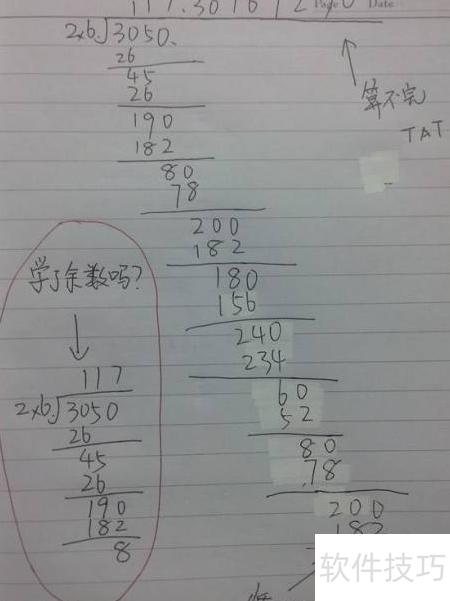 117.307692 Page Date
2×6.
3050.
26
45
26
190
182
80
78
200
182
180
156
240
234
60
52
80
78
200
182
算不完
TAT
学了余数吗?
117
2×6.
3050
26
45
26
190
182
8
软件技巧